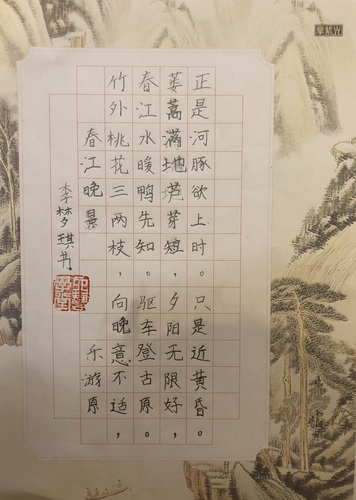 春江晚景
竹外桃花三两枝，
春江水暖鸭先知。
蒌蒿满地芦芽短，
正是河豚欲上时。
乐游原
向晚意不适，
驱车登古原。
夕阳无限好，
只是近黄昏。
李梦琪书